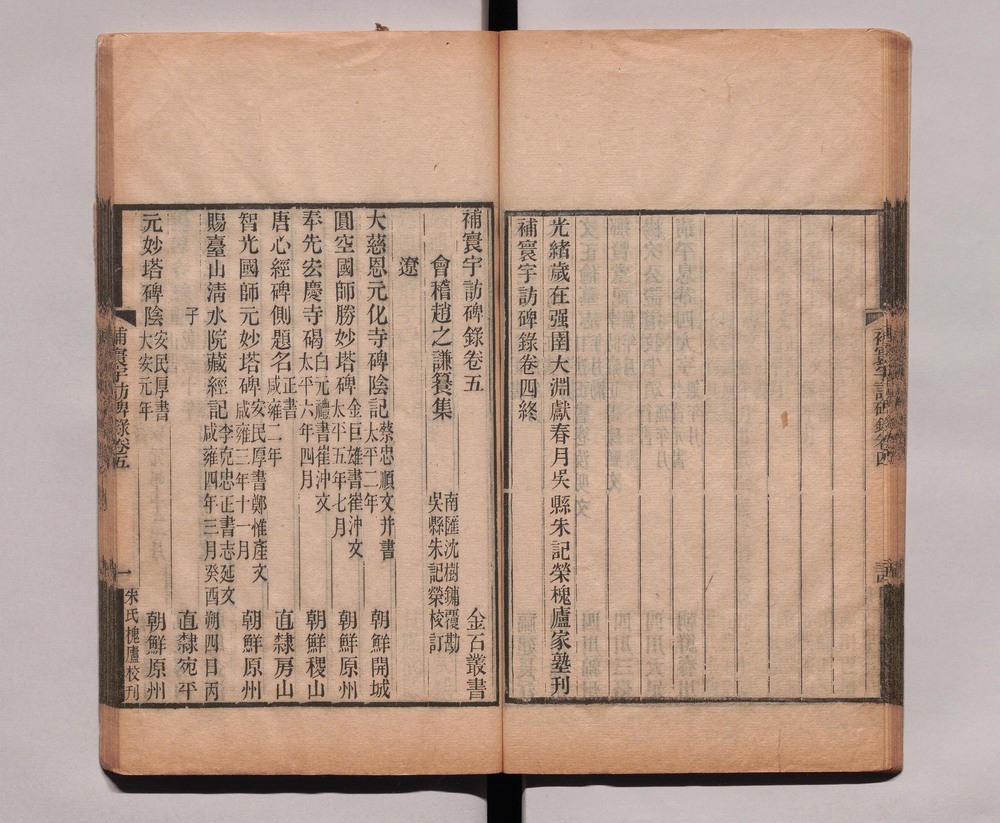 光緒歲在强圉大淵獻春月吳縣朱記榮槐廬家塾刊
補寰宇訪碑錄卷四終
補寰宇訪碑錄卷五
金石叢書
會稽趙之謙纂集
南匯沈樹鏞覆勘
吳縣朱記榮校訂
遼
大慈恩元化寺碑陰記
蔡忠順文并書
太平二年
朝鮮開城
圓空國師勝妙塔碑
金巨雄書崔沖文
太平五年七月
朝鮮原州
奉先宏慶寺碣
白元禮書崔沖文
太平六年四月
朝鮮稷山
唐心經碑側題名
正書
咸雍二年
直隸房山
智光國師元妙塔碑
安民厚書鄭惟產文
咸雍三年十一月
朝鮮原州
賜臺山清水院藏經記
李克忠正書志延文
咸雍四年三月癸酉朔四日丙
子
直隸宛平
元妙塔碑陰
安民厚書
大安元年
朝鮮原州
補寰宇訪碑錄卷五
一
朱氏槐廬校刊